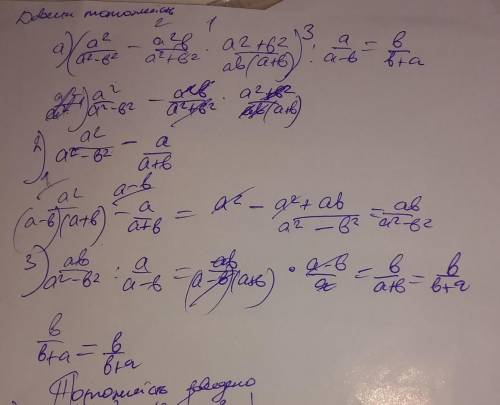 Довести тотожність
2 1 3
а) (a²/(a²-b²) - a²b/(a²+b²) · (a²+b²)/(ab(a+b))) : a/(a-b) = b/(b+a)
1) a²/(a²-b²) - a²b/(a²+b²) · (a²+b²)/(ab(a+b))
2) a²/(a²-b²) - a/(a+b)
a²/((a-b)(a+b)) - a/(a+b) = (a² - a² + ab)/(a² - b²) = ab/(a²-b²)
3) ab/(a²-b²) : a/(a-b) = ab/((a-b)(a+b)) · (a-b)/a = b/(a+b) = b/(b+a)
b/(b+a) = b/(b+a)
Тотожність доведено